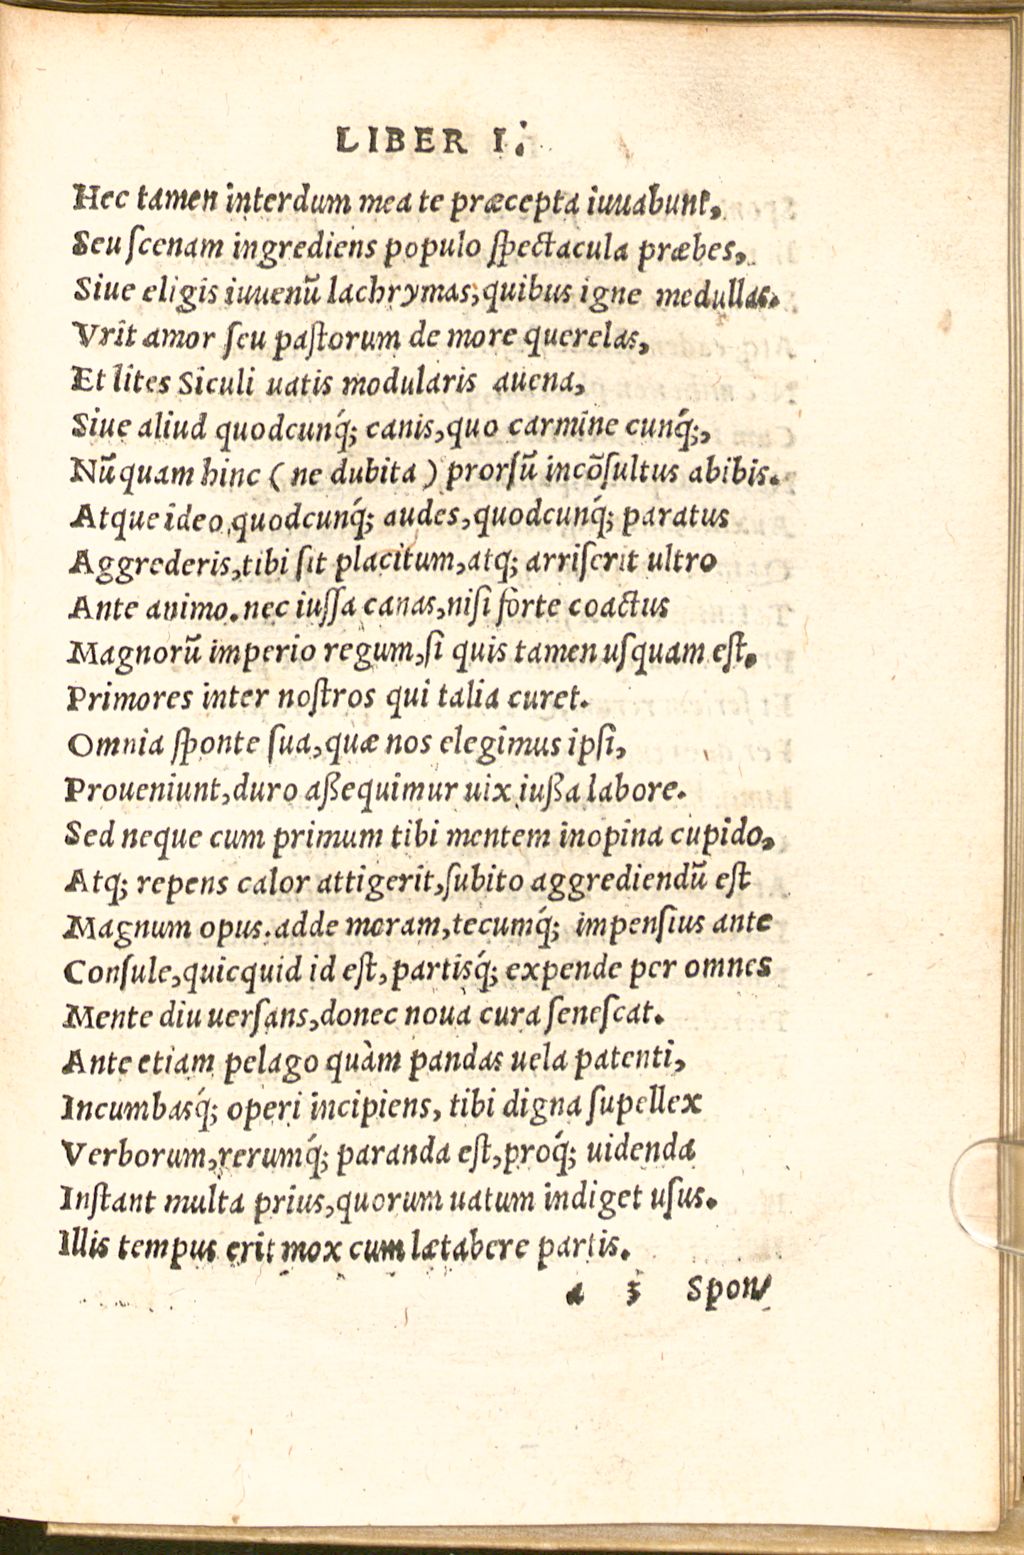 LIBER I.
Hec tamen interdum mea te præcepta iuuabunt,
Seu ſcenam ingrediens populo ſpectacula præbes,
Siue eligis iuuenũ lachrymas, quibus igne medullas.
Vrit amor ſeu paſtorum de more querelas,
Et lites Siculi uatis modularis auena,
Siue aliud quodcunq́; canis, quo carmine cunq́;,
Nũquam hinc ( ne dubita ) prorſũ incõſultus abibis.
Atque ideo quodcunq́; audes, quodcunq́; paratus
Aggrederis, tibi ſit placitum, atq; arriſerit ultro
Ante animo. nec iuſſa canas, niſi forte coactus
Magnorũ imperio regum, ſi quis tamen uſquam eſt,
Primores inter noſtros qui talia curet.
Omnia ſponte ſua, quæ nos elegimus ipſi,
Proueniunt, duro aßequimur uix iußa labore.
Sed neque cum primum tibi mentem inopina cupido,
Atq; repens calor attigerit, ſubito aggrediendũ eſt
Magnum opus. adde moram, tecumq́; impenſius ante
Conſule, quicquid id eſt, partisq́; expende per omnes
Mente diu uerſans, donec noua cura ſeneſcat.
Ante etiam pelago quàm pandas uela patenti,
Incumbasq́; operi incipiens, tibi digna ſupellex
Verborum, rerumq́; paranda eſt, proq́; uidenda
Inſtant multa prius, quorum uatum indiget uſus.
Illis tempus erit mox cum lætabere partis.
a 3 Spon/